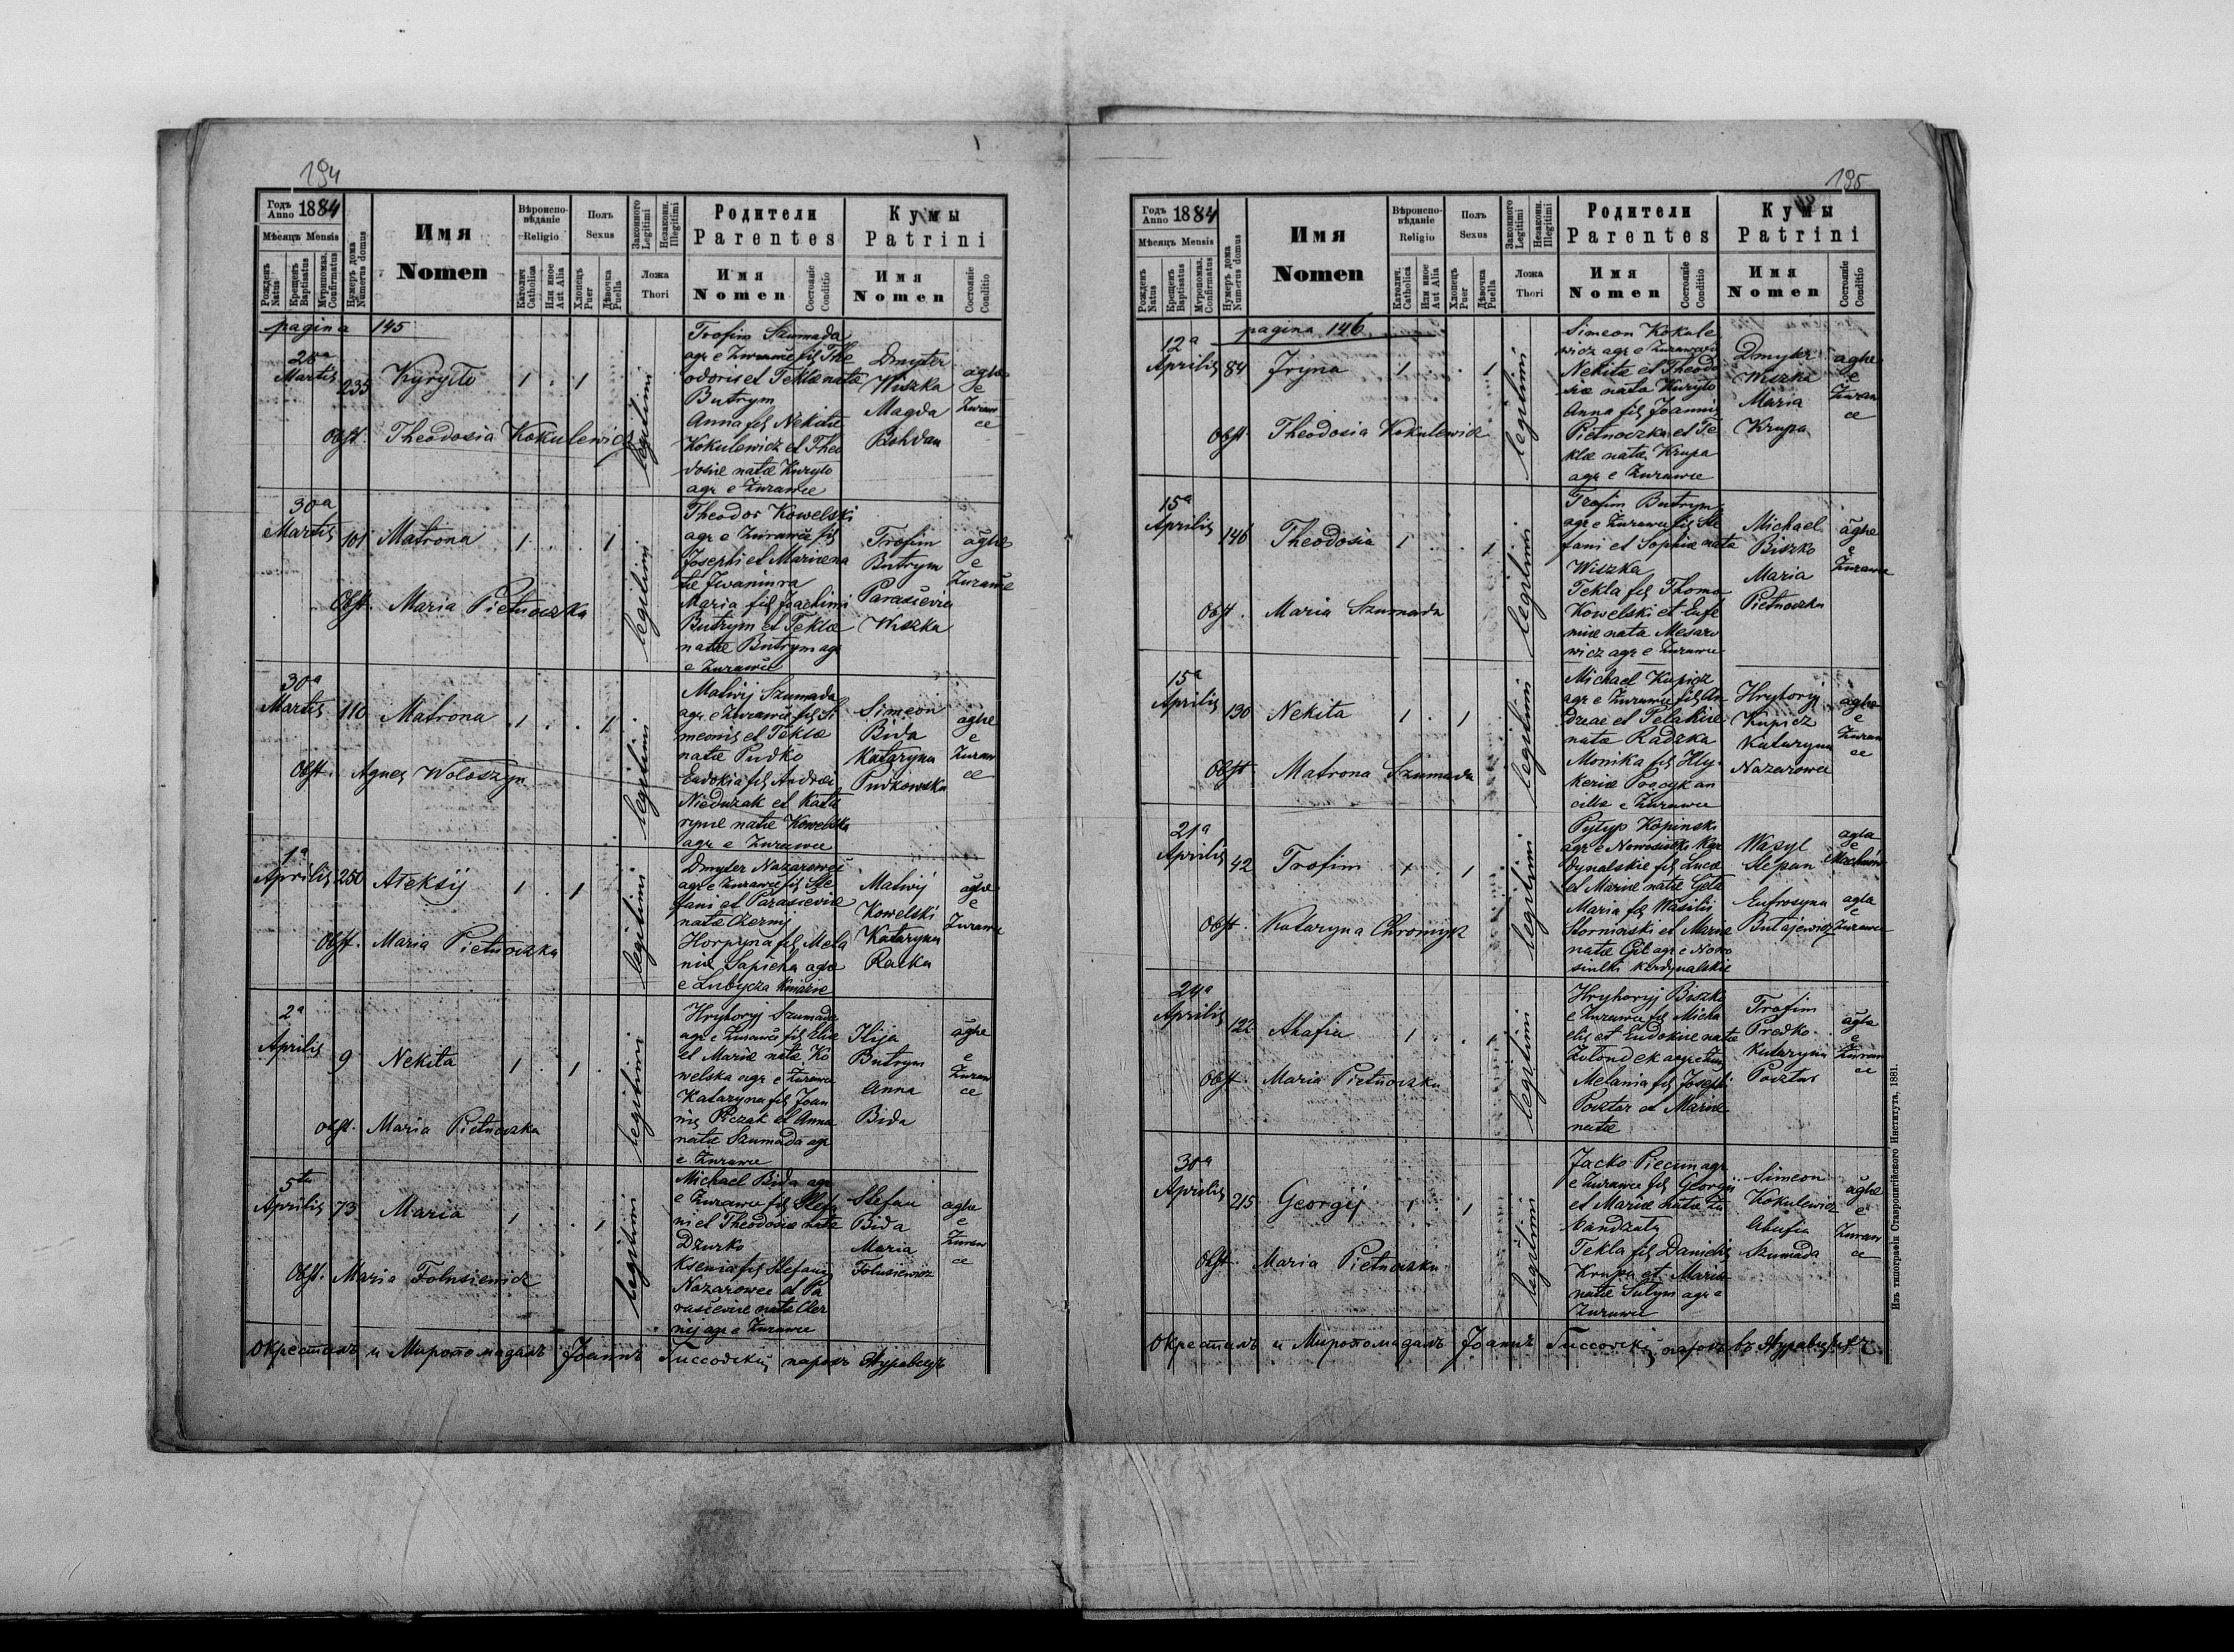 194
Годъ Anno 1884
Мѣсяцъ Mensis
Рожденъ Natus
Крещенъ Baptisatus
Мѵропомаз. Confirmatus
Нумеръ дома Numerus domus
Имя
Nomen
Вѣроиспо-
вѣданіе
Religio
Католич. Catholica
Или иное Aut Alia
Полъ
Sexus
Хлопецъ Puer
Дѣвочка Puella
Законного Legitimi
Незаконн. Illegitimi
Ложа
Thori
Родители
Parentes
Имя
Nomen
Состояніе Conditio
Кумы
Patrini
Имя
Nomen
Состояніе Conditio
pagina 145
Martis 235 Kyryło 1 . 1
legitimi
Obst. Theodosia Kokulewicz
Trofim Szumada
agr e Żurawce fil The
odoris et Teklæ natæ
Butrym
Anna fil Nekitæ
Kokulewicz et Theo
dosiæ natæ Kuryło
agr e Żurawce
Dmyter
Wiszka
Magda
Bohdan
agłæ
e
Żuraw
ce
30a
Martis 101 Matrona 1 . . 1
legitimi
Obst. Maria Pietnoczka
Theodor Kowelski
agr e Żurawce fil
Josephi et Mariæ na
tæ Iwaniura
Maria fil Joachimi
Butrym et Teklæ
natæ Butrym agr
e Żurawce
Trofim
Butrym
Parasievia
Wiszka
e
Żurawce
30a
Martis 110 Matrona 1 . . 1
legitimi
Obst. Agnes Wołoszyn
Matwij Szumada
agr e Żurawce fil Si
meonis et Teklæ
natæ Pudko
Eudokia fil Andreæ
Nieduzak et Kata
rynæ natæ Kowelska
agr e Żurawce
Simeon
Bida
Kataryna
Pudkowska
e
Żuraw
ce
1a
Aprilis 250 Ateksij 1 . 1
legitimi
Obst. Maria Pietnoczka
Dmyter Nazarowec
agr e Żurawce fil Ste
fani et Parasieviæ
natæ Czernij
Horpyna fil Mela
niæ Sapicha agræ
e Lubycza
Matwij
Kowelski
Kataryna
Racka
e
Żurawce
2a
Aprilis 9 Nekita 1 . 1
legitimi
obst. Maria Pietnoczka
Hryhoryj Szumada
agr e Żurawce fil Eliæ
et Mariæ natæ Ko
welska agr e Żurawce
Kataryna fil Joan
nis Piczak et Anna
natæ Szumada agr
e Żurawce
Ilija
Butrym
Anna
Bida
e
Żuraw
ce
5ta
Aprilis 73 Maria 1 . . 1
legitimi
Obst. Maria Tołusiewicz
Michael Bida agr
e Żurawce fil Stefa
ni et Theodosiæ natæ
Dzurko
Ksenia fil Stefani
Nazarowec et Pa
rasieviæ natæ Czer
nij agr e Żurawce
Stefan
Bida
Maria
Tołusiewicz
e
Żuraw
ce
Окрестилъ и Миропомазалъ Іоаннъ парохъ Журавецъ
195
Годъ Anno 1884
Мѣсяцъ Mensis
Рожденъ Natus
Крещенъ Baptisatus
Мѵропомаз. Confirmatus
Нумеръ дома Numerus domus
Имя
Nomen
Вѣроиспо-
вѣданіе
Religio
Католич. Catholica
Или иное Aut Alia
Полъ
Sexus
Хлопецъ Puer
Дѣвочка Puella
Законного Legitimi
Незаконн. Illegitimi
Ложа
Thori
Родители
Parentes
Имя
Nomen
Состояніе Conditio
Кумы
Patrini
Имя
Nomen
Состояніе Conditio
pagina 146
12a
Aprilis 84 Iryna 1 . . 1
legitimi
Obst. Theodosia Kokulewicz
Simeon Kokule
wicz agr e Żurawce fil
Nekitæ et Theodo
siæ nata Kuryło
Anna fil Joannis
Pietnoczka et Te
klæ natæ Krupa
agr e Żurawce
Dmyter
Wiszka
Maria
Krupa
e
Żuraw
ce
15a
Aprilis 146 Theodosia 1 . . 1
legitimi
Obst. Maria Szumada
Trofim Butrym
agr e Żurawce fil Ste
fani et Sophiæ nata
Wiszka
Tekla fil Thoma
Kowelski et Eufe
miæ nata Mesaro
wicz agr e Żurawce
Michael
Biszko
Maria
Pietnoczka
e
Żurawce
15a
Aprilis 130 Nekita 1 . 1
legitimi
Obst. Matrona Szumada
Michael Kupicz
agr e Żurawce fil An
dreae et Pelahiæ
natæ Radzka
Monika fil Hly
keriæ an
cilla e Żurawce
Hryhoryj
Kupicz
Kataryna
Nazarowec
e
Żuraw
ce
21a
Aprilis 42 Trofim 1 . 1
legitimi
Obst. Kataryna Chromyk
Pyłyp Kopinski
agr e Nowosiołki Kar
dynalskie fil Lucæ
et Mariæ natæ
Maria fil Wasilii
et Mariæ
natæ agr e Nowo
siułki kardynalskie
Wasyl
Stepan
Eufrosyna
Butajewicz
e
e
Żurawce
24a
Aprilis 122 Ahafia 1 . . 1
legitimi
Obst. Maria Pietnoczka
Hryhoryj Biszko
e Żurawce fil Micha
elis et Eudokiæ natæ
Zołondek agr e Żur
Melania fil Josephi
Pocztar et Mariæ
natæ
Trofim
Predko
Kataryna
Pocztar
e
Żuraw
ce
30a
Aprilis 215 Georgij 1 . 1
legitimi
Obst. Maria Pietnoczka
Jacko Piecun agr
e Żurawce fil Georgii
et Mariæ natæ
Tekla fil Danielis
Krupa et Mariæ
natæ Sułym agr e
Żurawce
Simeon
Kokulewicz
Ahafia
Szumada
e
Żuraw
ce
Окрестилъ и Миропомазалъ Іоаннъ парохъ
Изъ типографіи Ставропигійского Института, 1881.